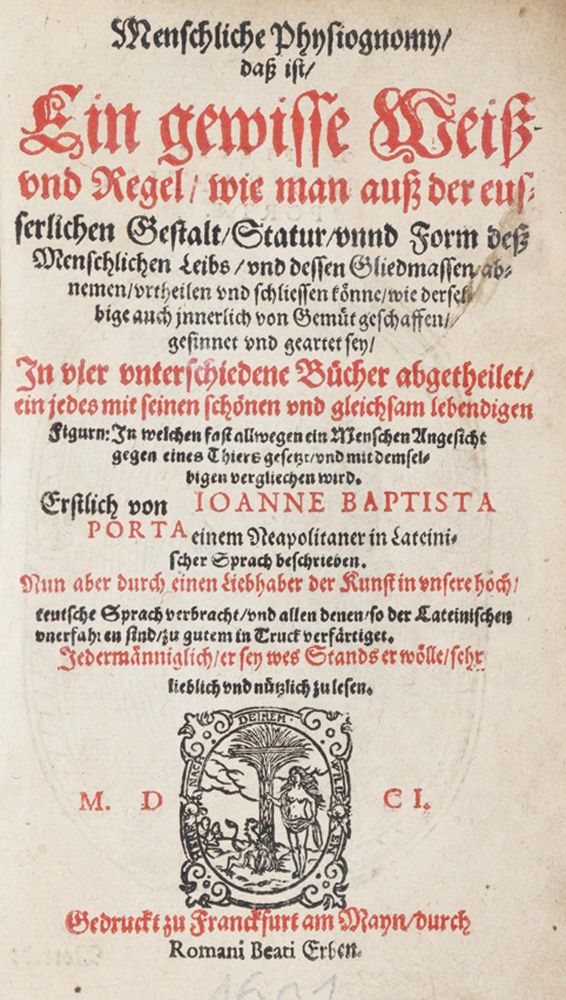 Menschliche Physiognomy/
daß ist/
Ein gewisse Weiß
vnd Regel/ wie man auß der eus-
serlichen Gestalt/Statur/vnnd Form deß
Menschlichen Leibs/vnd dessen Gliedmassen/ab-
nemen/vrtheilen vnd schliessen könne/wie dersel-
bige auch jnnerlich von Gemüt geschaffen/
gesinnet vnd geartet sey/
In vier vnterschiedene Bücher abgetheilet/
ein jedes mit seinen schönen vnd gleichsam lebendigen
Figurn: In welchen fast allwegen ein Menschen Angesicht
gegen eines Thiers gesetzt/vnd mit demsel-
bigen vergliechen wird.
Erstlich von IOANNE BAPTISTA
PORTA einem Neapolitaner in Lateini-
scher Sprach beschrieben.
Nun aber durch einen Liebhaber der Kunst in vnsere hoch/
teutsche Sprach verbracht/vnd allen denen/so der Lateinischen
vnerfahren sind/zu gutem in Truck verfärtiget.
Jedermänniglich/er sey wes Stands er wölle/sehr
lieblich vnd nützlich zu lesen.
DEINEM
M. D CI.
Gedruckt zu Franckfurt am Mayn/durch
Romani Beati Erben.
1601